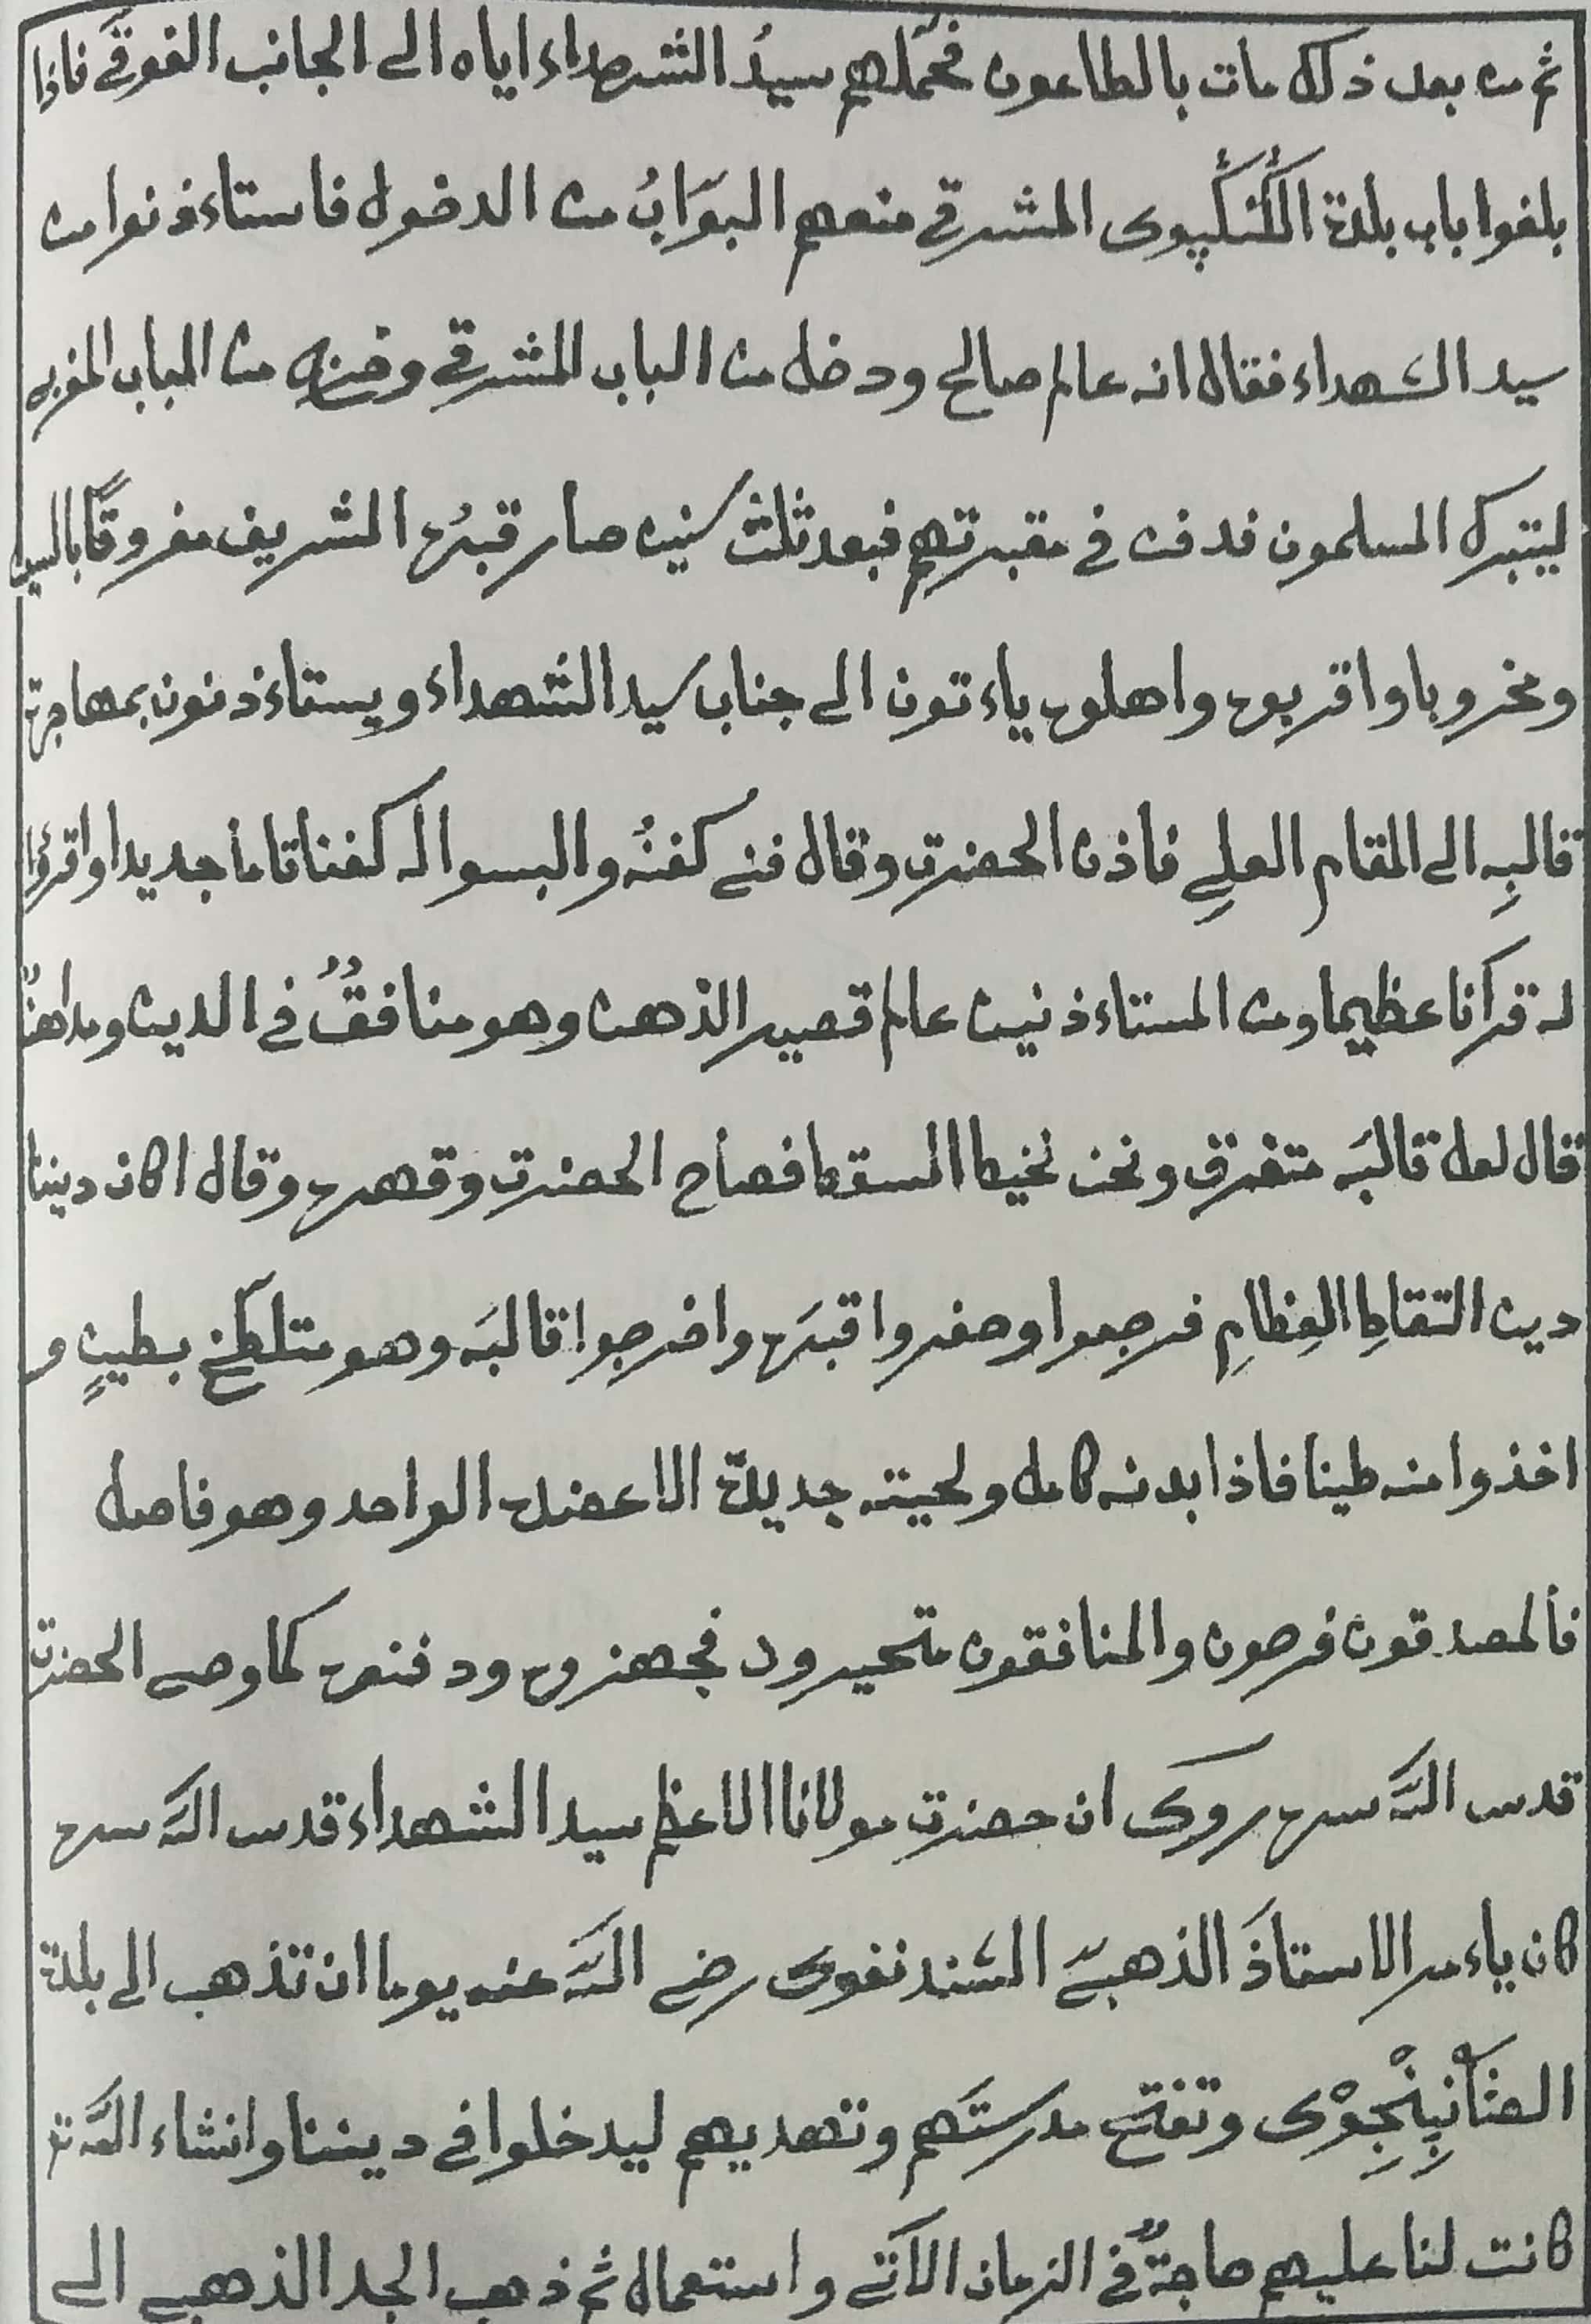 ثم من بعد ذلك مات بالطاعون فحملهم سيدُ الشهداء اياه الى الجانب الفوقي فاذا
بلغوا باب بلدة المشرقي منعهم البوّابُ من الدخول فاستاءذنوا من
سيد الشهداء فقال انه عالم صالح ودخل من الباب المشرقي من الباب المغربي
ليتبرك المسلمون فدفن في مقبرتهم فبعد ثلث سنين صار قبرُه الشريف مغروقًا بالسيل
ومخروبا واقربوه واهلوه ياءتون الى جناب سيد الشهداء ويستاءذنون بمهاجرة
قالبِه الى المقام العلىِ فاذن الحضرت وقال كفنُه والبسوا له كفنا تاما جديدا واقرؤا
له قرآنا عظيما ومن المستاءذنين عالم قصير الذهن وهو منافقٌ في الدين ومداهنٌ
قال لعل قالبَه متفرق ونحن السقط فصاح الحضرت وقهره وقال اكان ديننا
دين التقاطِ العِظامِ فرجعوا وحفروا قبرَه واخرجوا قالبَه وهو متلطخ بطينٍ و
اخذوا منه طينا فاذا بدنه كامل ولحيته جديدة الا عضده الواحد وهو فاصل
فالمصدقون فرحون والمنافقون متحيرون فجهزوه ودفنوه كما وصى الحضرت
قدس الله سره روى ان حضرت مولانا الاعظم سيد الشهداء قدس الله سره
كان ياءمر الاستاذَ الذهبىّ السندنفوى رضى الله عنه يوما ان تذهب الى بلدة
وتفتح مدرستَهم وتهديهم ليدخلوا في ديننا وانشاء الله تع
كانت لنا عليهم حاجةٌ في الزمان الآتى واستعمال ثم ذهب الجد الذهبى الى